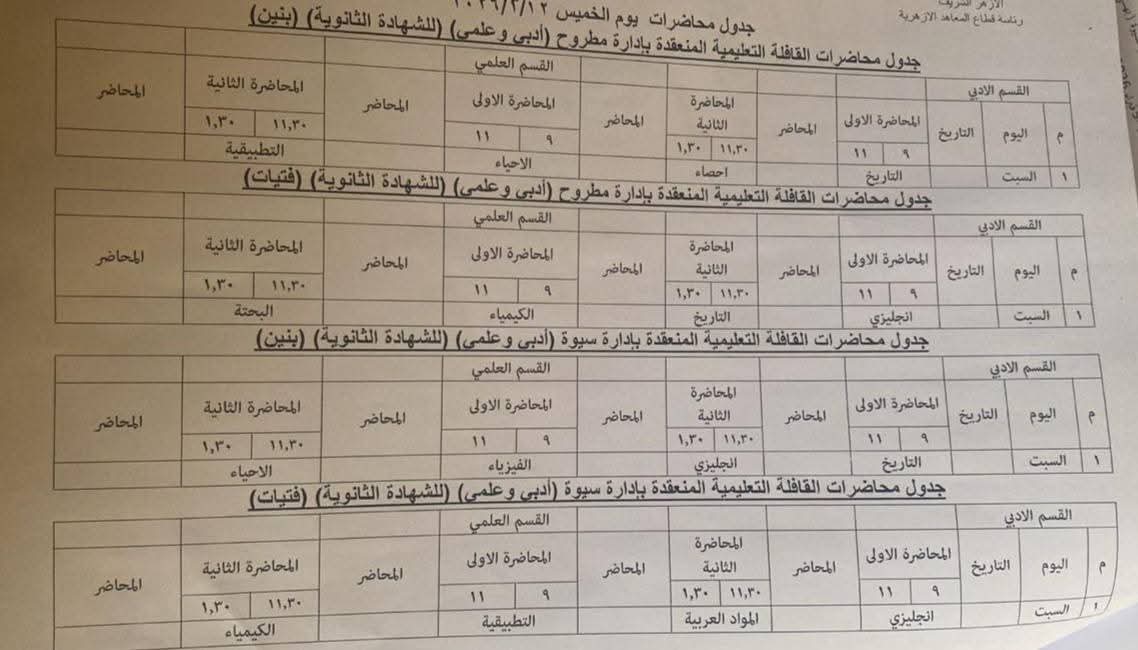 الأزهر الشريف
رئاسة قطاع المعاهد الازهرية
جدول محاضرات يوم الخميس ٢٠٢٦/٢/١٢
جدول محاضرات القافلة التعليمية المنعقدة بإدارة مطروح (أدبي وعلمي) (للشهادة الثانوية) (بنين)
القسم الادبي القسم العلمي
م اليوم التاريخ المحاضرة الاولى المحاضر المحاضرة الثانية المحاضر المحاضرة الاولى المحاضر المحاضرة الثانية المحاضر
٩ ١١ ١١,٣٠ ١,٣٠ ٩ ١١ ١١,٣٠ ١,٣٠
١ السبت التاريخ احصاء الاحياء التطبيقية
جدول محاضرات القافلة التعليمية المنعقدة بإدارة مطروح (أدبي وعلمي) (للشهادة الثانوية) (فتيات)
القسم الادبي القسم العلمي
م اليوم التاريخ المحاضرة الاولى المحاضر المحاضرة الثانية المحاضر المحاضرة الاولى المحاضر المحاضرة الثانية المحاضر
٩ ١١ ١١,٣٠ ١,٣٠ ٩ ١١ ١١,٣٠ ١,٣٠
١ السبت انجليزي التاريخ الكيمياء البحتة
جدول محاضرات القافلة التعليمية المنعقدة بإدارة سيوة (أدبي وعلمي) (للشهادة الثانوية) (بنين)
القسم الادبي القسم العلمي
م اليوم التاريخ المحاضرة الاولى المحاضر المحاضرة الثانية المحاضر المحاضرة الاولى المحاضر المحاضرة الثانية المحاضر
٩ ١١ ١١,٣٠ ١,٣٠ ٩ ١١ ١١,٣٠ ١,٣٠
١ السبت التاريخ انجليزي الفيزياء الاحياء
جدول محاضرات القافلة التعليمية المنعقدة بإدارة سيوة (أدبي وعلمي) (للشهادة الثانوية) (فتيات)
القسم الادبي القسم العلمي
م اليوم التاريخ المحاضرة الاولى المحاضر المحاضرة الثانية المحاضر المحاضرة الاولى المحاضر المحاضرة الثانية المحاضر
٩ ١١ ١١,٣٠ ١,٣٠ ٩ ١١ ١١,٣٠ ١,٣٠
١ السبت انجليزي المواد العربية التطبيقية الكيمياء